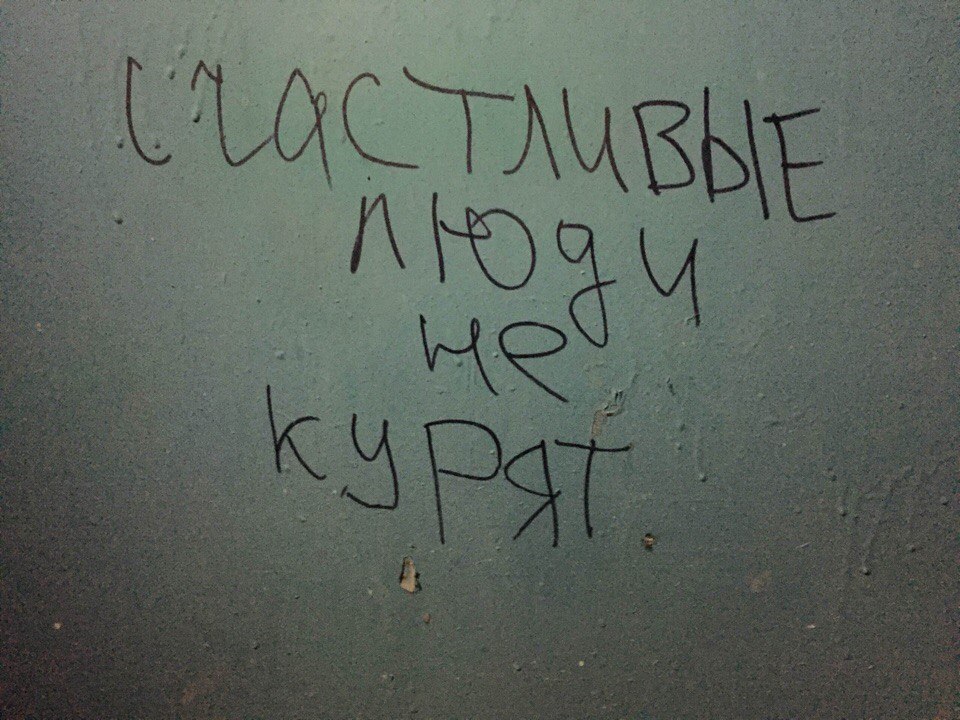 СЧАСТЛИВЫЕ
люди
не
курят